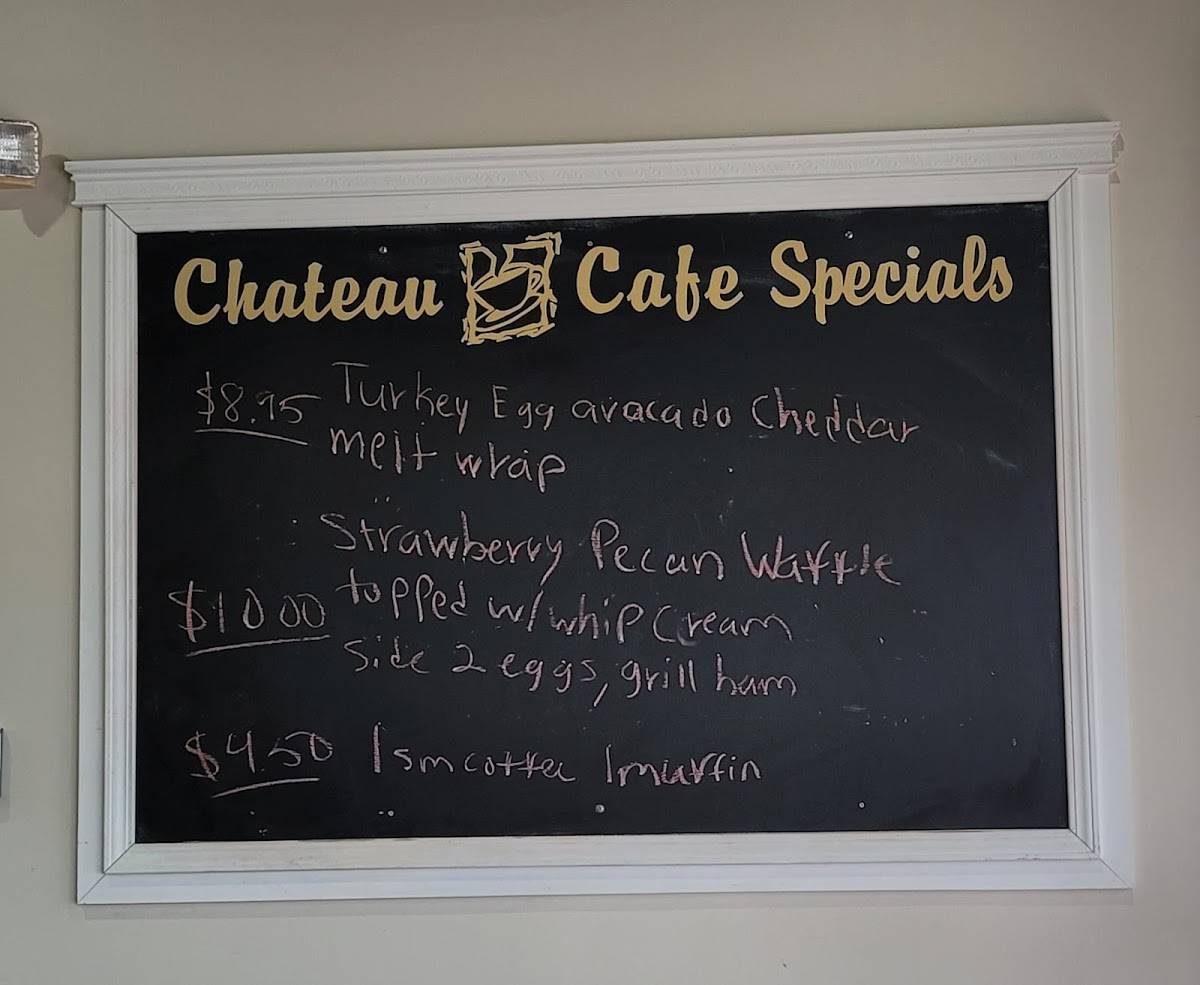 Chateau Cafe Specials
$8.95 Turkey Egg avacado Cheddar
melt wrap
Strawberry Pecan Waffle
$10.00 topped w/ whip Cream
Side 2 eggs, grill ham
$4.50 1 sm coffee 1 muffin